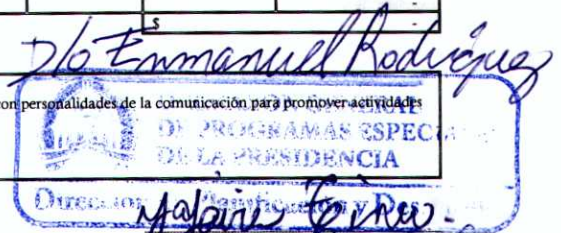 $
D/o Enmanuel Rodríguez
con personalidades de la comunicación para promover actividades
DE PROGRAMAS ESPEC
DE LA PRESIDENCIA
Dirección Planificación y Des